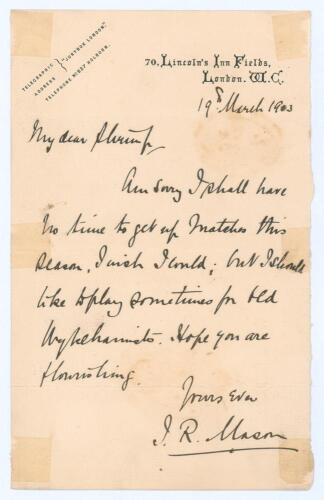 TELEGRAPHIC ADDRESS } "JUSTRUX LONDON."
TELEPHONE Nº 927 HOLBORN.
70, Lincoln's Inn Fields,
London. W.C.
19th March 1903
My dear Shrimp,
Am sorry I shall have
no time to get up matches this
season, I wish I could; but I should
like to play sometimes for Old
Wykehamists. Hope you are
flourishing.
Yours Ever
J. R. Mason